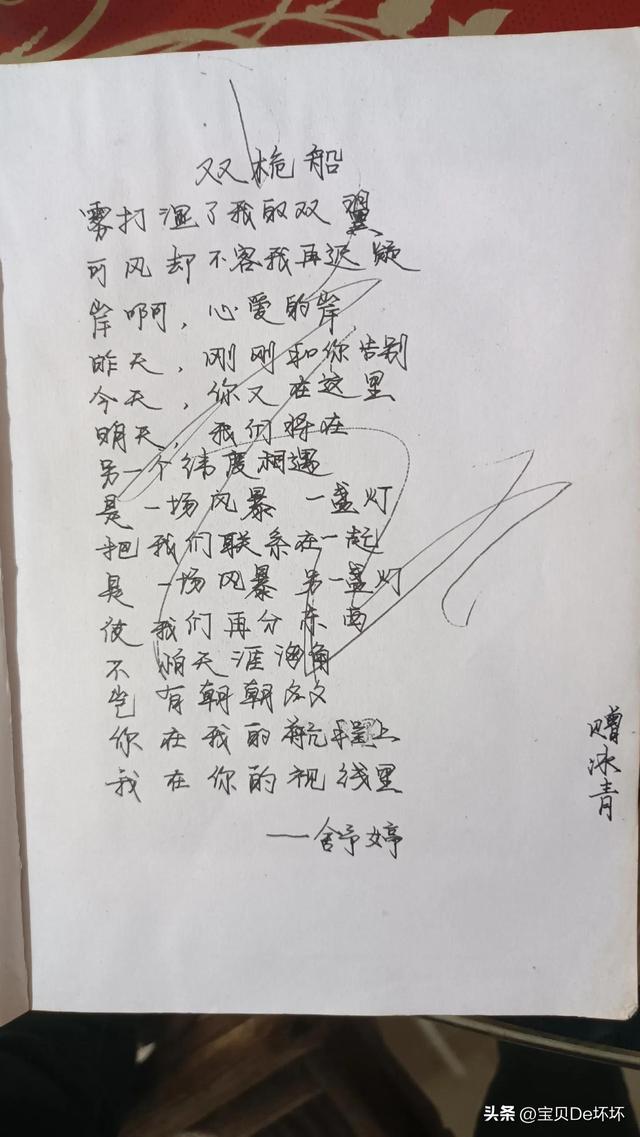 双桅船
雾打湿了我的双翼
可风却不容我再迟疑
岸啊，心爱的岸，
昨天，刚刚和你告别
今天，你又在这里
明天，我们将在
另一个纬度相遇
是一场风暴 一盏灯
把我们联系在一起
是一场风暴 另一盏灯
使我们再分东西
不怕天涯海角
岂有朝朝夕夕
你在我的航程上
我在你的视线里
——舒婷
赠冰青
头条 @宝贝De坏坏